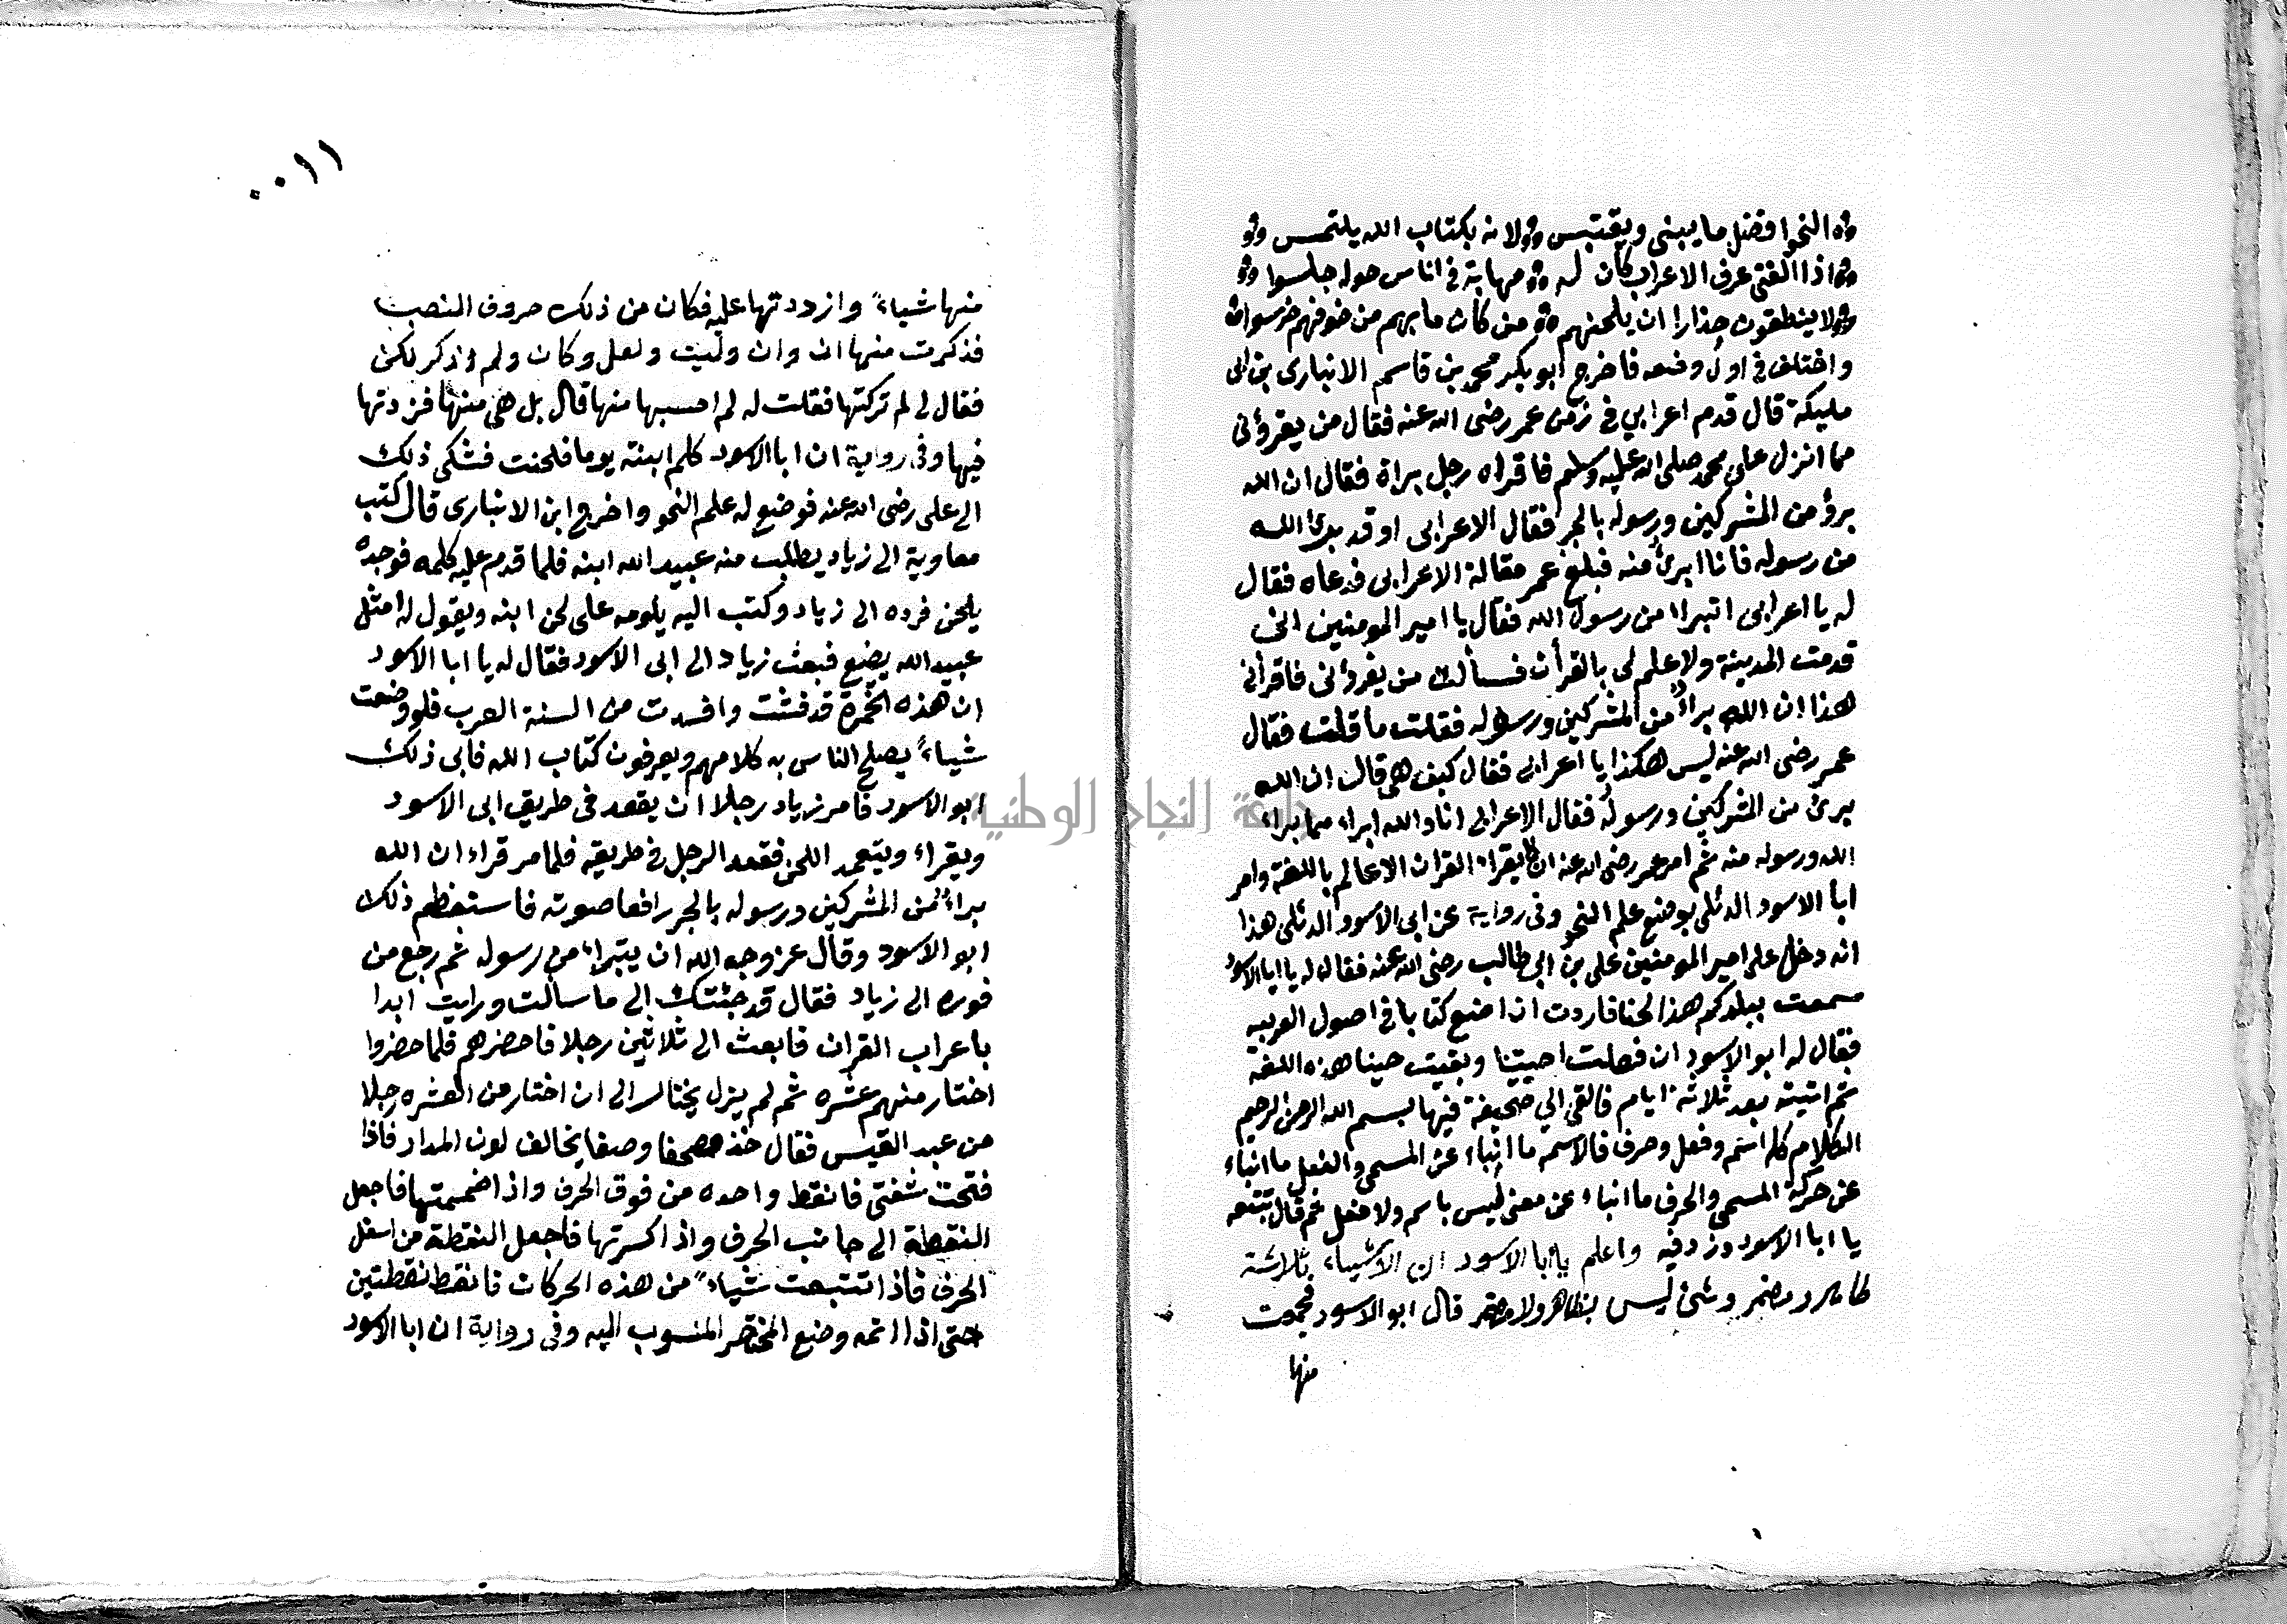 النحو افضل ما يبنى ويقتبس لانه بكتاب الله يلتمس
اذا الفتى عرف الاعراب كان له مهابة في اناس حوله جلسوا
لا ينطقون حذارا ان يلحنهم من كان ما بهم من خوفهم خرسوا
واختلف في اول وضعه فاخرج ابو بكر محمد بن قاسم الانبارى بن ابى
مليكة قال قدم اعرابي في زمن عمر رضى الله عنه فقال من يقرؤنى
مما انزل على محمد صلى الله عليه وسلم فاقراه رجل براة فقال ان الله
برؤ من المشركين ورسوله بالجر فقال الاعرابى اوقد برئ الله
من رسوله فانا ابرئ منه فبلغ عمر مقالة الاعرابى فدعاه فقال
له يا اعرابى اتبرا من رسول الله فقال يا امير المومنين انى
قدمت المدينة ولا علم لى بالقرأن فسألت من يقرؤنى فاقرأنى
هذا ان الله براء من المشركين ورسوله فقلت ما قلت فقال
عمر رضى الله عنه ليس هكذا يا اعرابى فقال كيف هى قال ان الله
برئ من المشركين ورسوله فقال الاعرابى انا والله ابراء مما براء
الله ورسوله منه ثم امر عمر رضى الله عنه ان لا يقراء القران الا عالم باللغة وامر
ابا الاسود الدئلى بوضع علم النحو وفى رواية عن ابى الاسود الدئلى هذا
انه دخل على امير المومنين على بن ابى طالب رضى الله عنه فقال له يا ابا الاسود
سمعت ببلدكم هذا لحنا فاردت ان اضع كتابا في اصول العربيه
فقال له ابو الاسود ان فعلت احييتنا وبقيت حينا هذه اللغة
ثم اتيته بعد ثلاثة ايام فالقى الي صحيفة فيها بسم الله الرحمن الرحيم
الكلام كله اسم وفعل وحرف فالاسم ما انباء عن المسمى والفعل ما انباء
عن حركة المسمى والحرف ما انباء عن معنى ليس باسم ولا فعل ثم قال تتبعه
يا ابا الاسود وزد فيه واعلم يا ابا الاسود ان الاشياء ثلاثة
ظاهر ومضمر وشئ ليس بظاهر ولا مضمر قال ابو الاسود فجمعت
منها
٠٠١١
منها شياءً وازددتها عليه فكان من ذلك حروف النصب
فذكرت منها ان وان وليت ولعل وكان ولم اذكر لكن
فقال لى لم تركتها فقلت له لم احسبها منها قال بل هى منها فزدتها
فيها وفى رواية ان ابا الاسود كلم ابنته يوما فلحنت فشكى ذلك
الى على رضى الله عنه فوضع له علم النحو واخرج ابن الانبارى قال كتب
معاوية الى زياد يطلب منه عبيد الله ابنه فلما قدم عليه كلمه فوجده
يلحن فرده الى زياد وكتب اليه يلومه على لحن ابنه ويقول له امثل
عبيد الله يضع فبعث زياد الى ابى الاسود فقال له يا ابا الاسود
ان هذه الحمرة قد فشت وافسدت من السنة العرب فلو وضعت
شياءً يصلح الناس به كلامهم ويعرفون كتاب الله فابى ذلك
ابو الاسود فامر زياد رجلا ان يقعد فى طريق ابى الاسود
ويقراء ويتعمد اللحن فقعد الرجل في طريقه فلما مر قراء ان الله
براء من المشركين ورسوله بالجر رافعا صوته فاستعظم ذلك
ابو الاسود وقال عز وجه الله ان يتبراء من رسوله ثم رجع من
فوره الى زياد فقال قد جئتك الى ما سالت ورايت ابدا
باعراب القران فابعث الى ثلاثين رجلا فاحضرهم فلما حضروا
اختار منهم عشره ثم لم يزل يختار الى ان اختار من العشره رجلا
من عبد القيس فقال خذ مصحفا وصفا يخالف لون المداد فاذا
فتحت شفتى فانقط واحده من فوق الحرف واذا ضممتها فاجعل
النقطة الى جانب الحرف واذا كسرتها فاجعل النقطة من اسفل
الحرف فاذا تتبعت شياءً من هذه الحركات فانقط نقطتين
حتى اذا اتمه وضع المختصر المنسوب اليه وفى رواية ان ابا الاسود
جامعة النجاح الوطنية